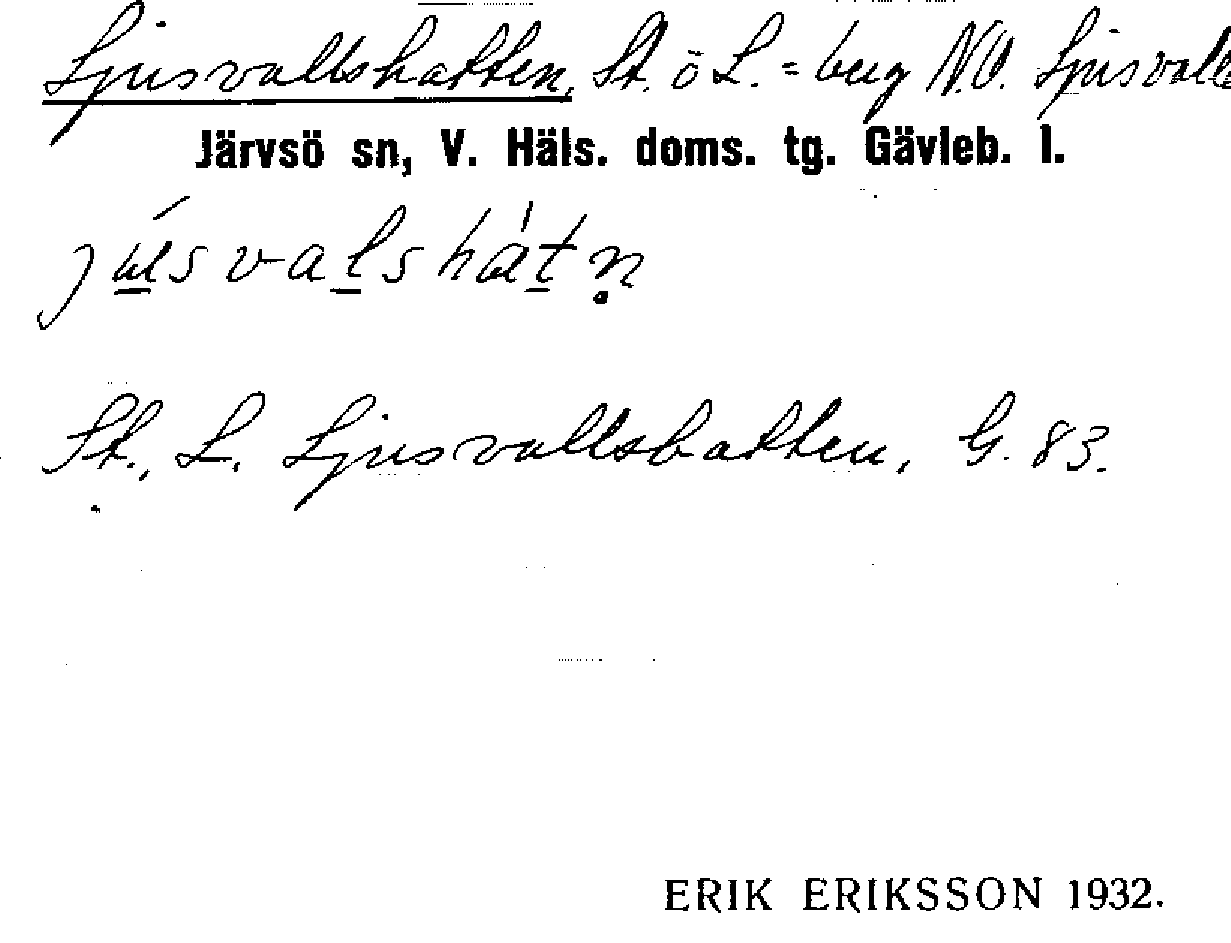 Ljusvallshatten, St. o L. = berg N.O. Ljusvalls
Järvsö sn, V. Häls. doms. tg. Gävleb. l.
jús valshàtn̥
St., L. Ljusvallshatten, G. 83.
ERIK ERIKSSON 1932.